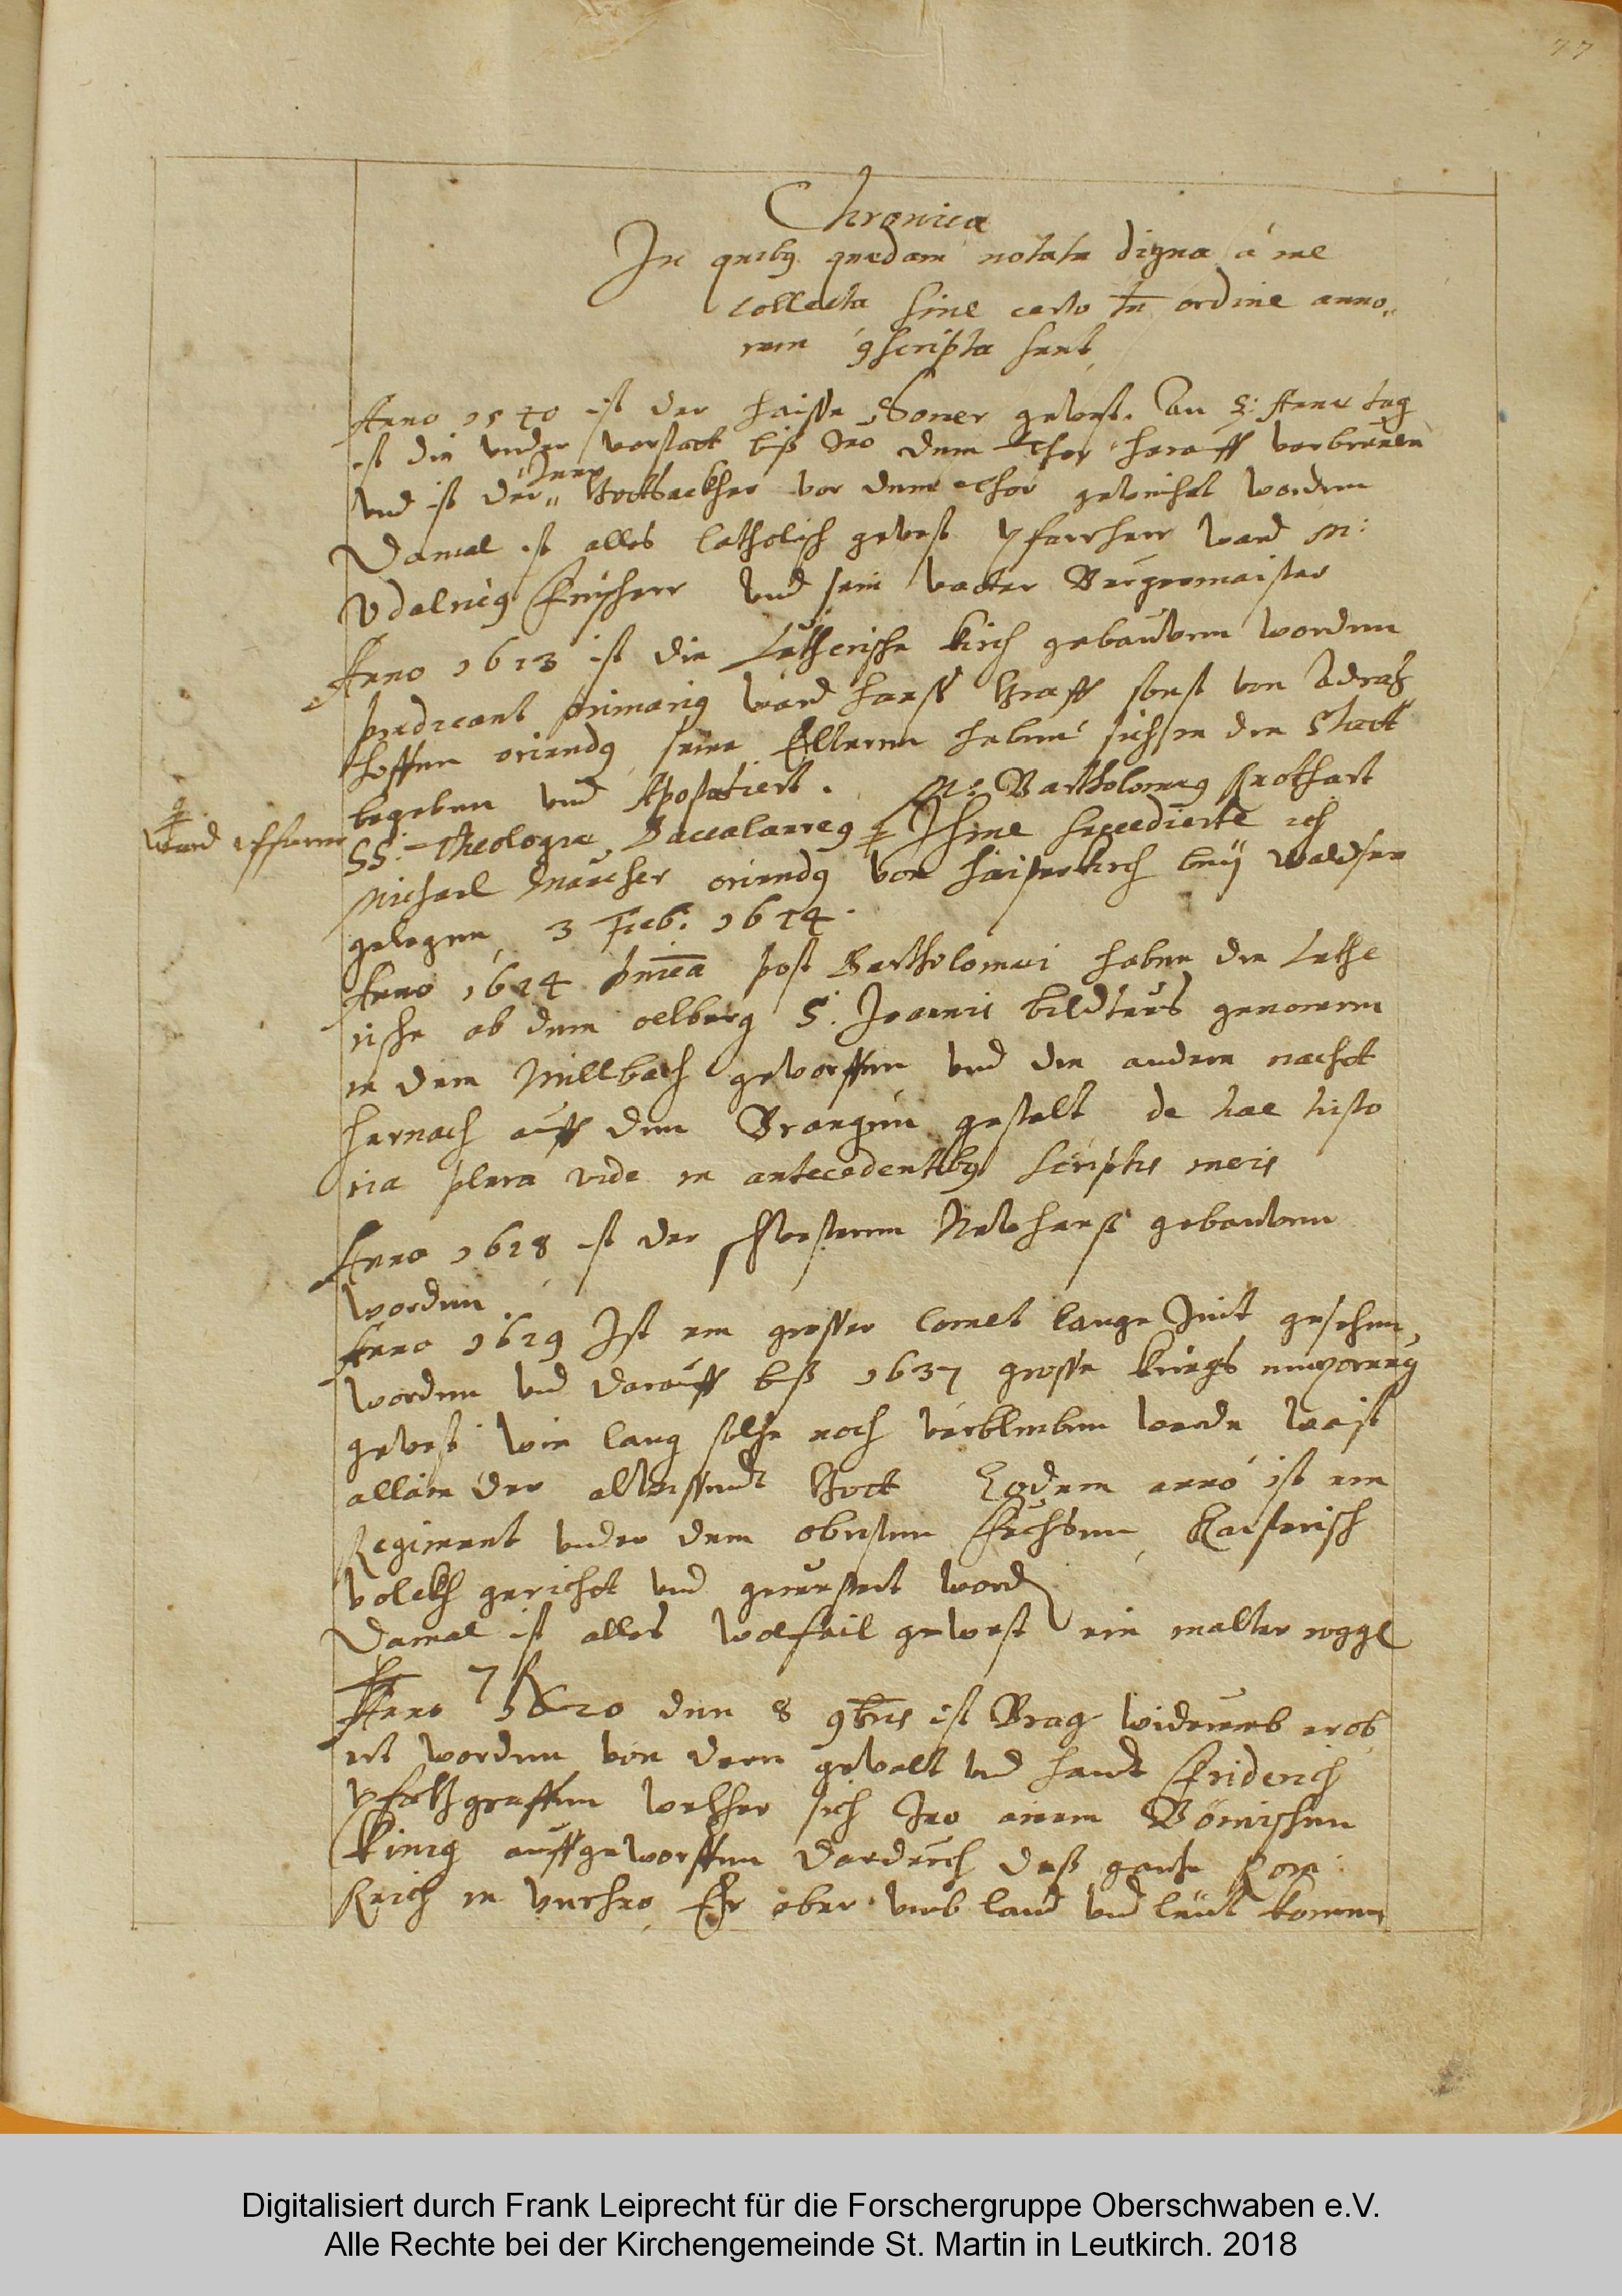 77
Chronica
In quibꝯ quædam notatu digna à me
collecta sine certo tn̄ ordine anno„
rum ꝯscripta sunt
Anno 1540 ist der haisse Somer gewest. An S: Annæ tag
ist die under vorstatt biß Zuo dem Thor herauff verbrunen
und ist der „ Gottsackher vor dem Thor geweihet worden
Damal ist alles Catholisch gewest Pfarrherr ward M:
Vdalricꝯ und sein vatter Burgermaister
Anno 1613 ist die Lutherische Kirch gebauwen worden
prædicant primariꝯ ward Hanß Graff sonst von Adratz
hoffen oriundꝯ seine Elteren haben sich in die Statt
begeben und Apostatiert. M: Bartholomeꝯ Rothart
SS: Theologiæ Baccalaureꝯ Ihme succedierte ich
ward
Michael Maucher oriundꝯ von Haisterkirch bey Waldsee
gelegen 3 Feb: 1614.
Anno 1624 post Bartholomæi haben die Luthe
rische ab dem oelberg S. Joannis bildtnus genomen
in den Millbach geworffen und die andere nacht
hernach auff den gestelt de hac histo
ria plura vide in antecedentibꝯ scriptis meis
Anno 1628 ist der Schwesteren Newhauß gebauwen
worden
Anno 1619 Ist ein grosser Comet lange Zeit gesehen
worden und darauff biß 1637 grosse kriegs empörung
gewest wie lang solche noch verbleiben werde waist
allain der allwissendt Gott Eodem anno ist ein
Regiment under dem obristen Fuchsen Kaiserisch
volckh gericht und gemustert word
Damal ist alles wolfail gewest ein malter roggē
7
Anno 1620 den 8 9bris ist Brag widerumb erob
ert worden von dem gewalt und handt Friderich
Pfaltzgraffen welcher sich Zuo einem Bömischen
Künig auffgeworffen dardurch daß gantze Rom:
Reich in unrhuo Er aber umb land und leüt komen
Digitalisiert durch Frank Leiprecht für die Forschergruppe Oberschwaben e.V.
Alle Rechte bei der Kirchengemeinde St. Martin in Leutkirch. 2018